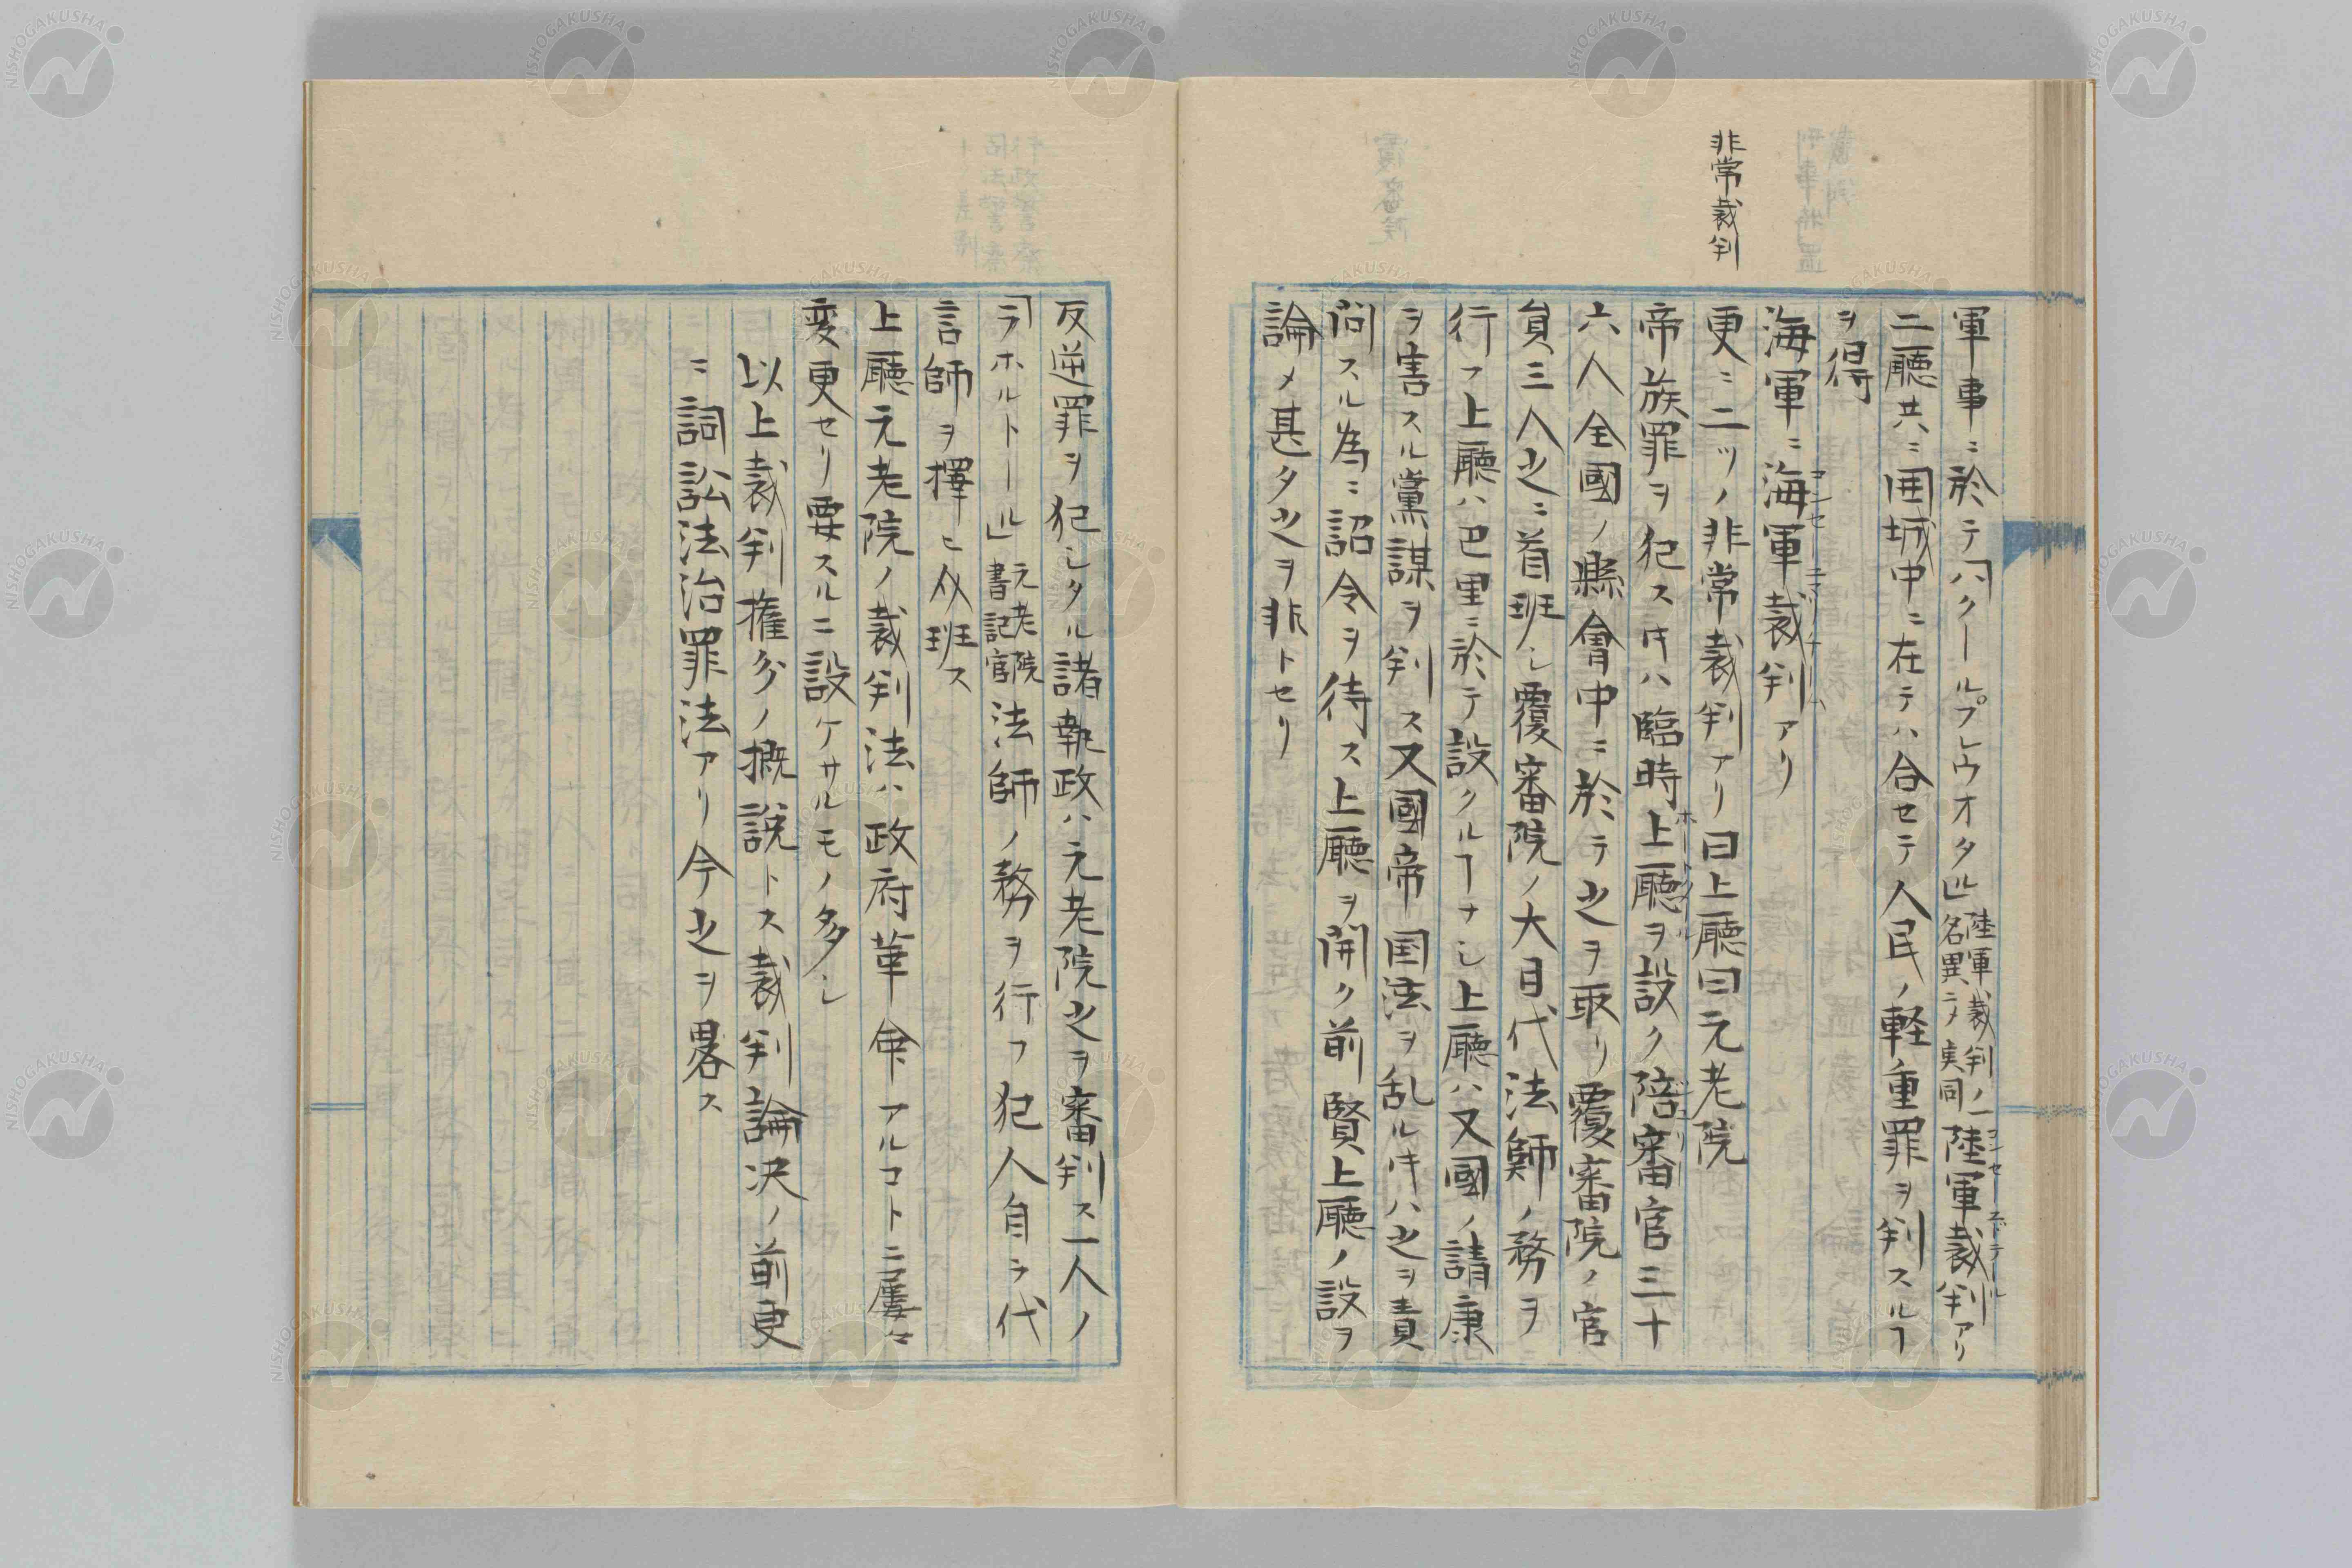 非常裁判
軍事ニ於テ「ハクールプレウオタル」陸軍裁判ノ一名異ニノ実同陸軍裁判アリ
二廳共ニ囲城中ニ在テハ合セテ人民ノ軽重罪ヲ判スルヿ
ヲ得
海軍ニ海軍裁判アリ
更ニ二ツノ非常裁判アリ曰上廳曰元老院
帝族罪ヲ犯スキハ臨時上廳ヲ設ク陪審官三十
六人全國ノ縣會中ニ於テ之ヲ取リ覆審院ノ官
員三人之ニ首班シ覆審院ノ大目代法師ノ務ヲ
行フ上廳ハ巴里ニ於テ設クルヿナシ上廳ハ又國ノ請康
ヲ害スル黨謀ヲ判ス又國帝国法ヲ乱ルキハ之ヲ責
問スル為ニ詔令ヲ待ス上廳ヲ開ク前賢上廳ノ設ヲ
論メ甚タ之ヲ非トセリ
反逆罪ヲ犯シタル諸執政ハ元老院之ヲ審判ス一人ノ
「ラホルトール」元老院書記官法師ノ務ヲ行フ犯人自ラ代
言師ヲ擇ヒ以班ス
上廳元老院ノ裁判法ハ政府革命アルコトニ屢々
変更セリ要スルニ設ケサルモノ多シ
以上裁判権分ノ概説トス裁判論决ノ前更
ニ詞訟法治罪法アリ今之ヲ畧ス